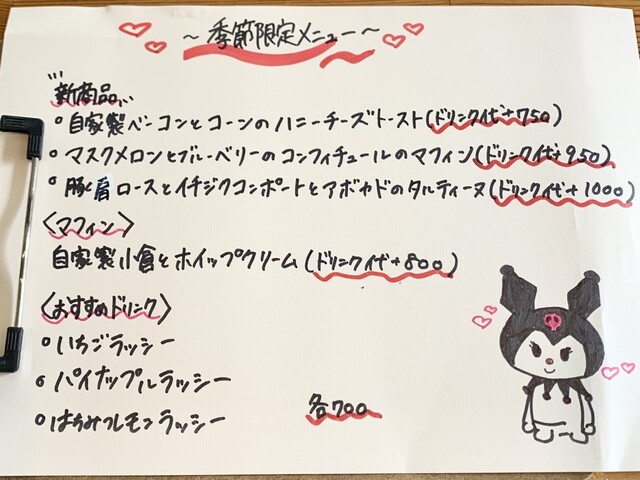 ～季節限定メニュー～
新商品
・自家製ベーコンとコーンのハニーチーズトースト(ドリンク代+750)
・マスクメロンとブルーベリーのコンフィチュールのマフィン(ドリンク代+950)
・豚肩ロースとイチジクコンポートとアボカドのタルティーヌ(ドリンク代+1000)
〈マフィン〉
自家製小倉とホイップクリーム(ドリンク代+800)
〈おすすめドリンク〉
・いちごラッシー
・パイナップルラッシー
・はちみつレモンラッシー 各700